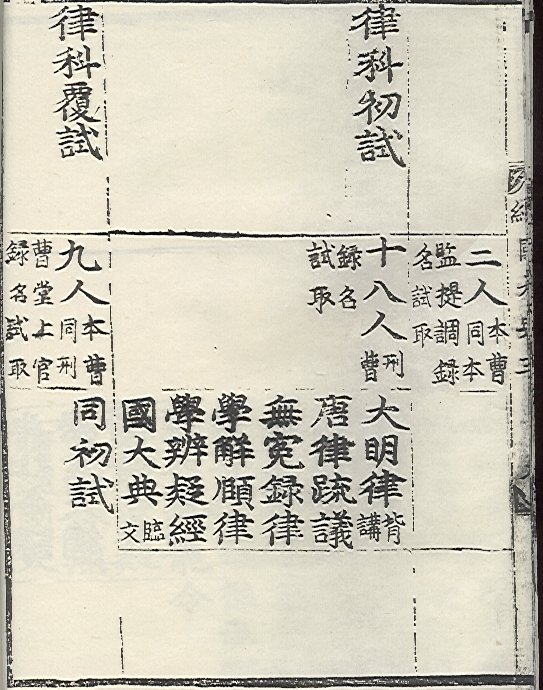 二人本曹同本
監提調錄
名試取
律科初試
十八人刑曹
錄名
試取
大明律背講
唐律疏議
無冤錄律
學解頤律
學辨疑經
國大典臨文
律科覆試
九人本曹同刑
曹堂上官
錄名試取
同初試